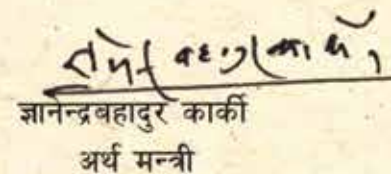 ज्ञानेन्द्रबहादुर कार्की
अर्थ मन्त्री